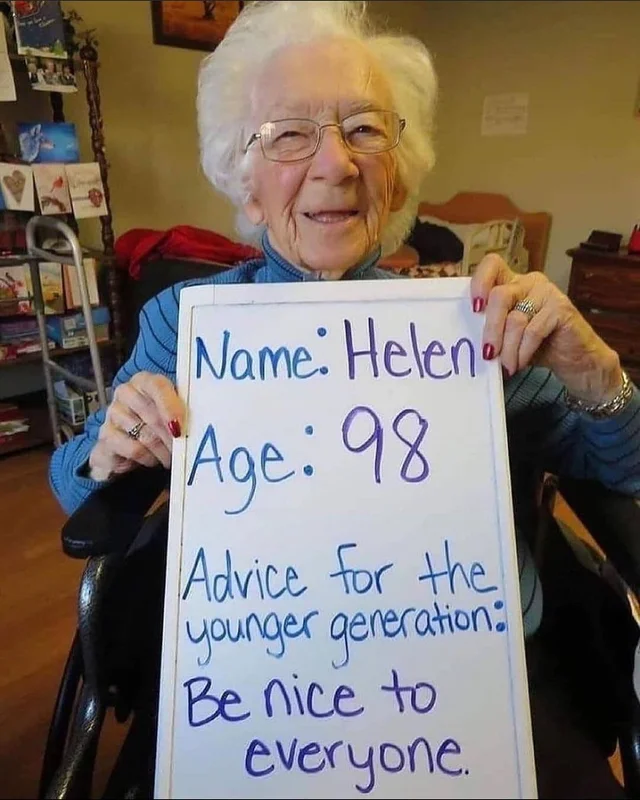 Name: Helen
Age: 98
Advice for the
younger generation:
Be nice to
everyone.